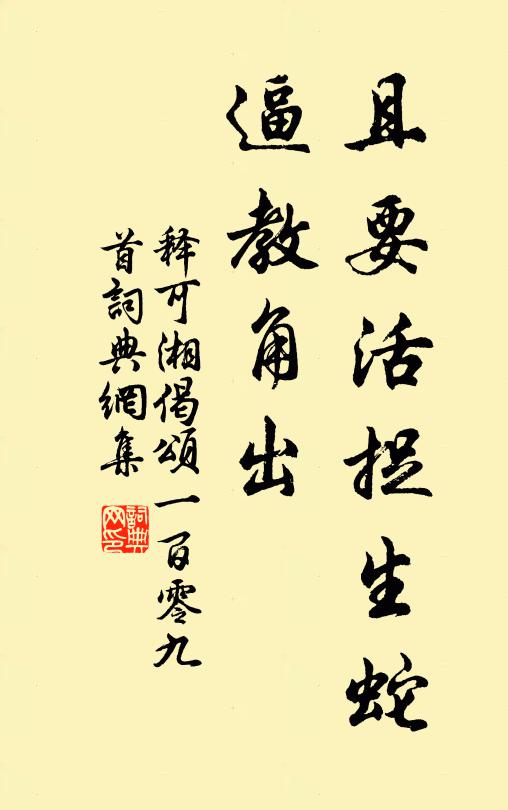 且要活捉生蛇
逼教角出
释可湘偈頌一百零九
首詞典網集
詞典
网印